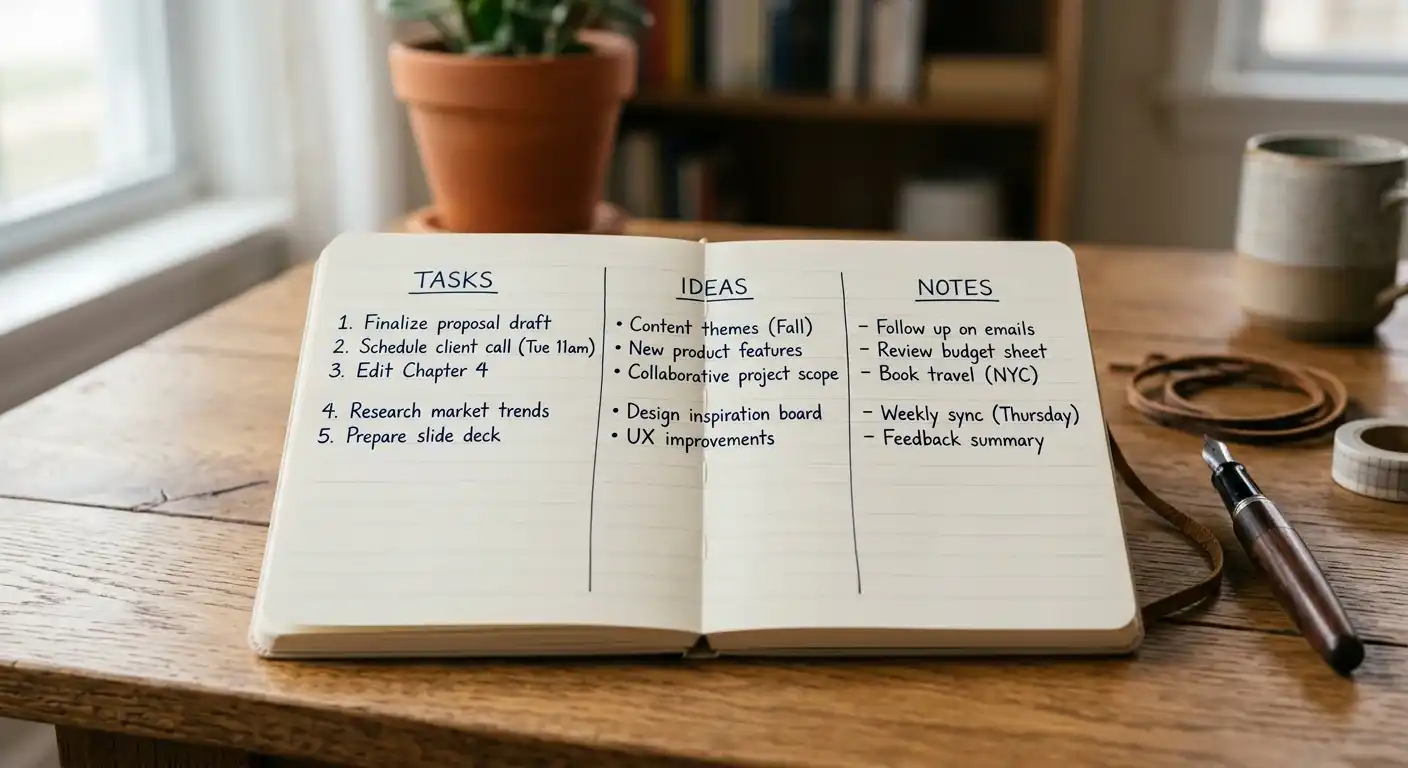 TASKS
1. Finalize proposal draft
2. Schedule client call (Tue 11am)
3. Edit Chapter 4
4. Research market trends
5. Prepare slide deck
IDEAS
• Content themes (Fall)
• New product features
• Collaborative project scope
• Design inspiration board
• UX improvements
NOTES
– Follow up on emails
– Review budget sheet
– Book travel (NYC)
– Weekly sync (Thursday)
– Feedback summary